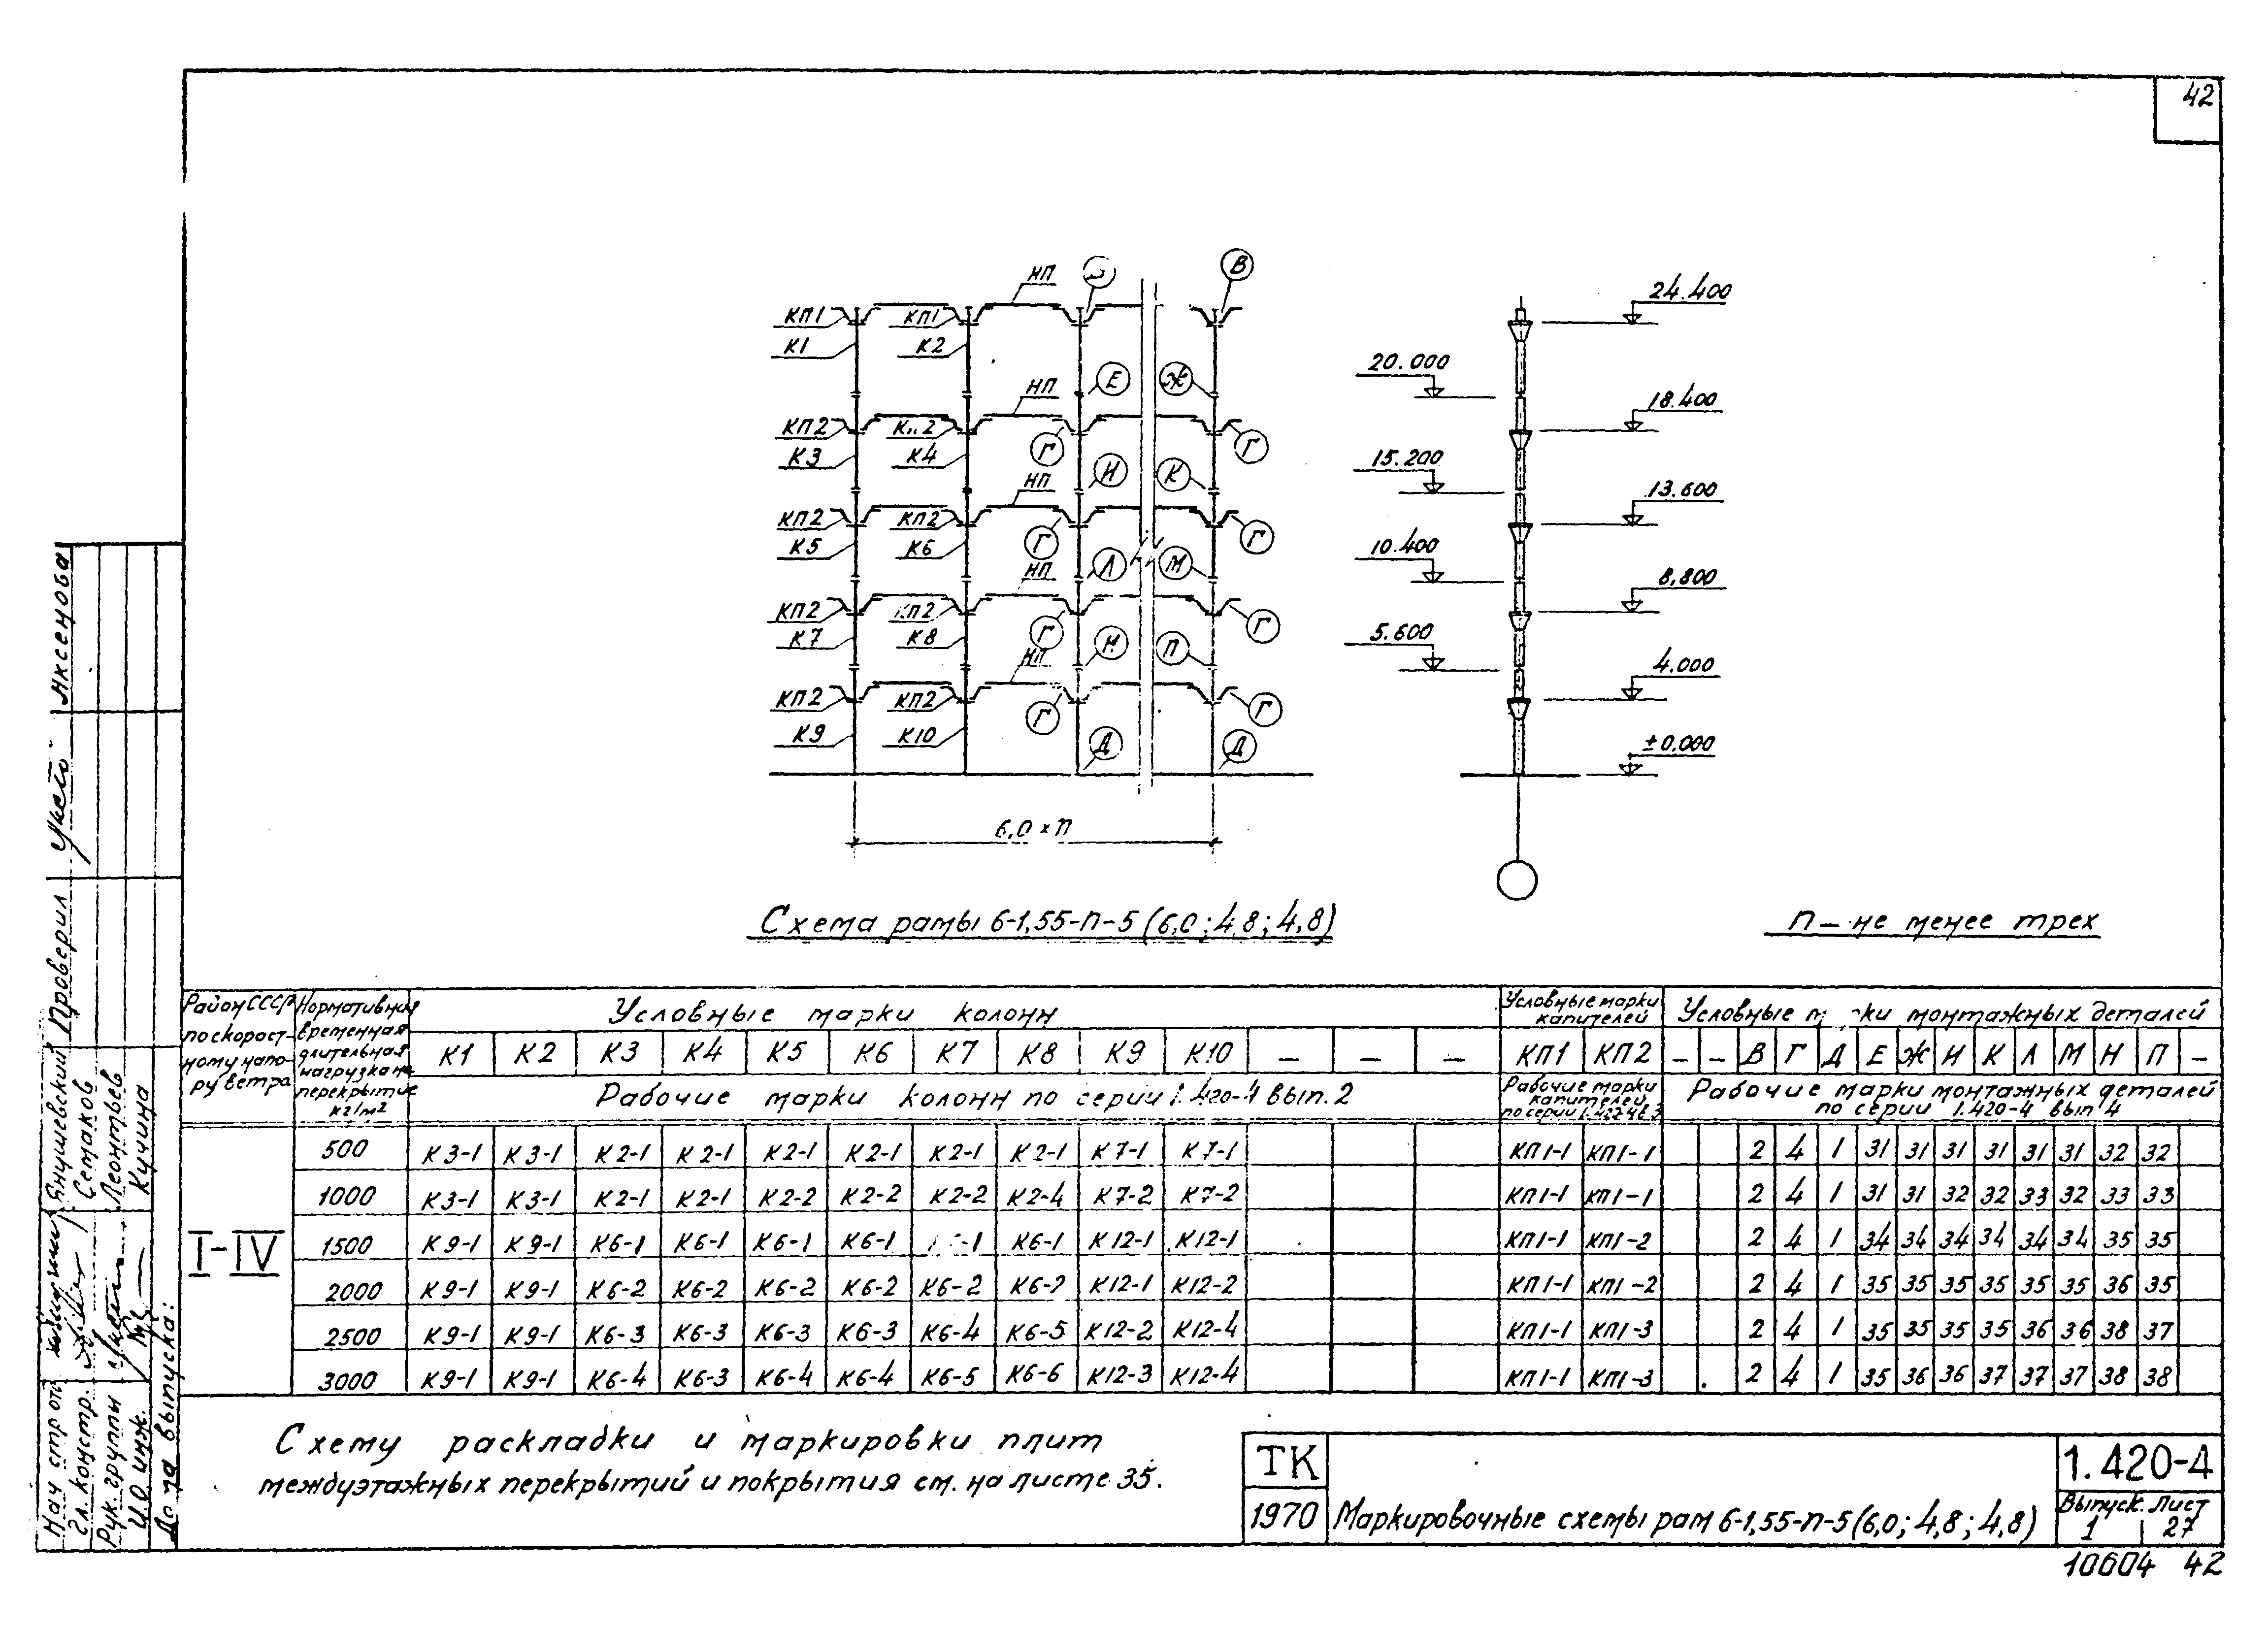 42
НП
В
КП1
КП1
К1
К2
24.400
20.000
НП
Е
Ж
18.400
КП2
К3
К4
Г
Г
15.200
НП
И
К
13.600
КП2
КП2
К5
К6
Г
Г
10.400
НП
Л
М
8,800
КП2
КП2
К7
К8
Г
Г
5.600
НП
Н
П
4.000
КП2
КП2
Г
Г
К9
К10
Д
Д
±0,000
6,0 × п
Схема рамы 6-1,55-п-5 (6,0; 4,8; 4,8)
п – не менее трех
Район СССР по скорост-ному напо-ру ветра
Нормативная временная длительная нагрузка на перекрытие кг/м2
Условные марки колонн
Условные марки капителей
Условные марки монтажных деталей
К1 К2 К3 К4 К5 К6 К7 К8 К9 К10 – – – КП1 КП2 – – В Г Д Е Ж И К Л М Н П –
Рабочие марки колонн по серии 1.420-4 вып. 2
Рабочие марки капителей по серии
Рабочие марки монтажных деталей по серии 1.420-4 вып 4
I-IV
500 К3-1 К3-1 К2-1 К2-1 К2-1 К2-1 К2-1 К2-1 К7-1 К7-1 КП1-1 КП1-1 2 4 1 31 31 31 31 31 31 32 32
1000 К3-1 К3-1 К2-1 К2-1 К2-2 К2-2 К2-2 К2-4 К7-2 К7-2 КП1-1 КП1-1 2 4 1 31 31 32 32 33 32 33 33
1500 К9-1 К9-1 К6-1 К6-1 К6-1 К6-1 К6-1 К12-1 К12-1 КП1-1 КП1-2 2 4 1 34 34 34 34 34 34 35 35
2000 К9-1 К9-1 К6-2 К6-2 К6-2 К6-2 К6-2 К6-2 К12-1 К12-2 КП1-1 КП1-2 2 4 1 35 35 35 35 35 35 36 35
2500 К9-1 К9-1 К6-3 К6-3 К6-3 К6-3 К6-4 К6-5 К12-2 К12-4 КП1-1 КП1-3 2 4 1 35 35 35 35 36 36 38 37
3000 К9-1 К9-1 К6-4 К6-3 К6-4 К6-4 К6-5 К6-6 К12-3 К12-4 КП1-1 КП1-3 2 4 1 35 36 36 37 37 37 38 38
Схему раскладки и маркировки плит
междуэтажных перекрытий и покрытия см. на листе 35.
ТК
1970
Маркировочные схемы рам 6-1,55-п-5 (6,0; 4,8; 4,8)
1.420-4
Выпуск Лист
1 27
10604 42
Нач стр отд Янишевский Проверил Аксенова
Гл. констр. Сетаков
Рук. группы Леонтьев
И.О инж. Кучина
Дата выпуска: